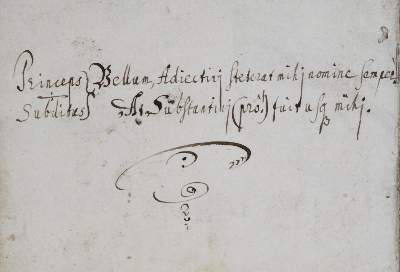 Princeps } Bellum, Adiectivj steterat mihj nomine semper
Subditus } At Substantivj (prôh) fuit usq mihj.